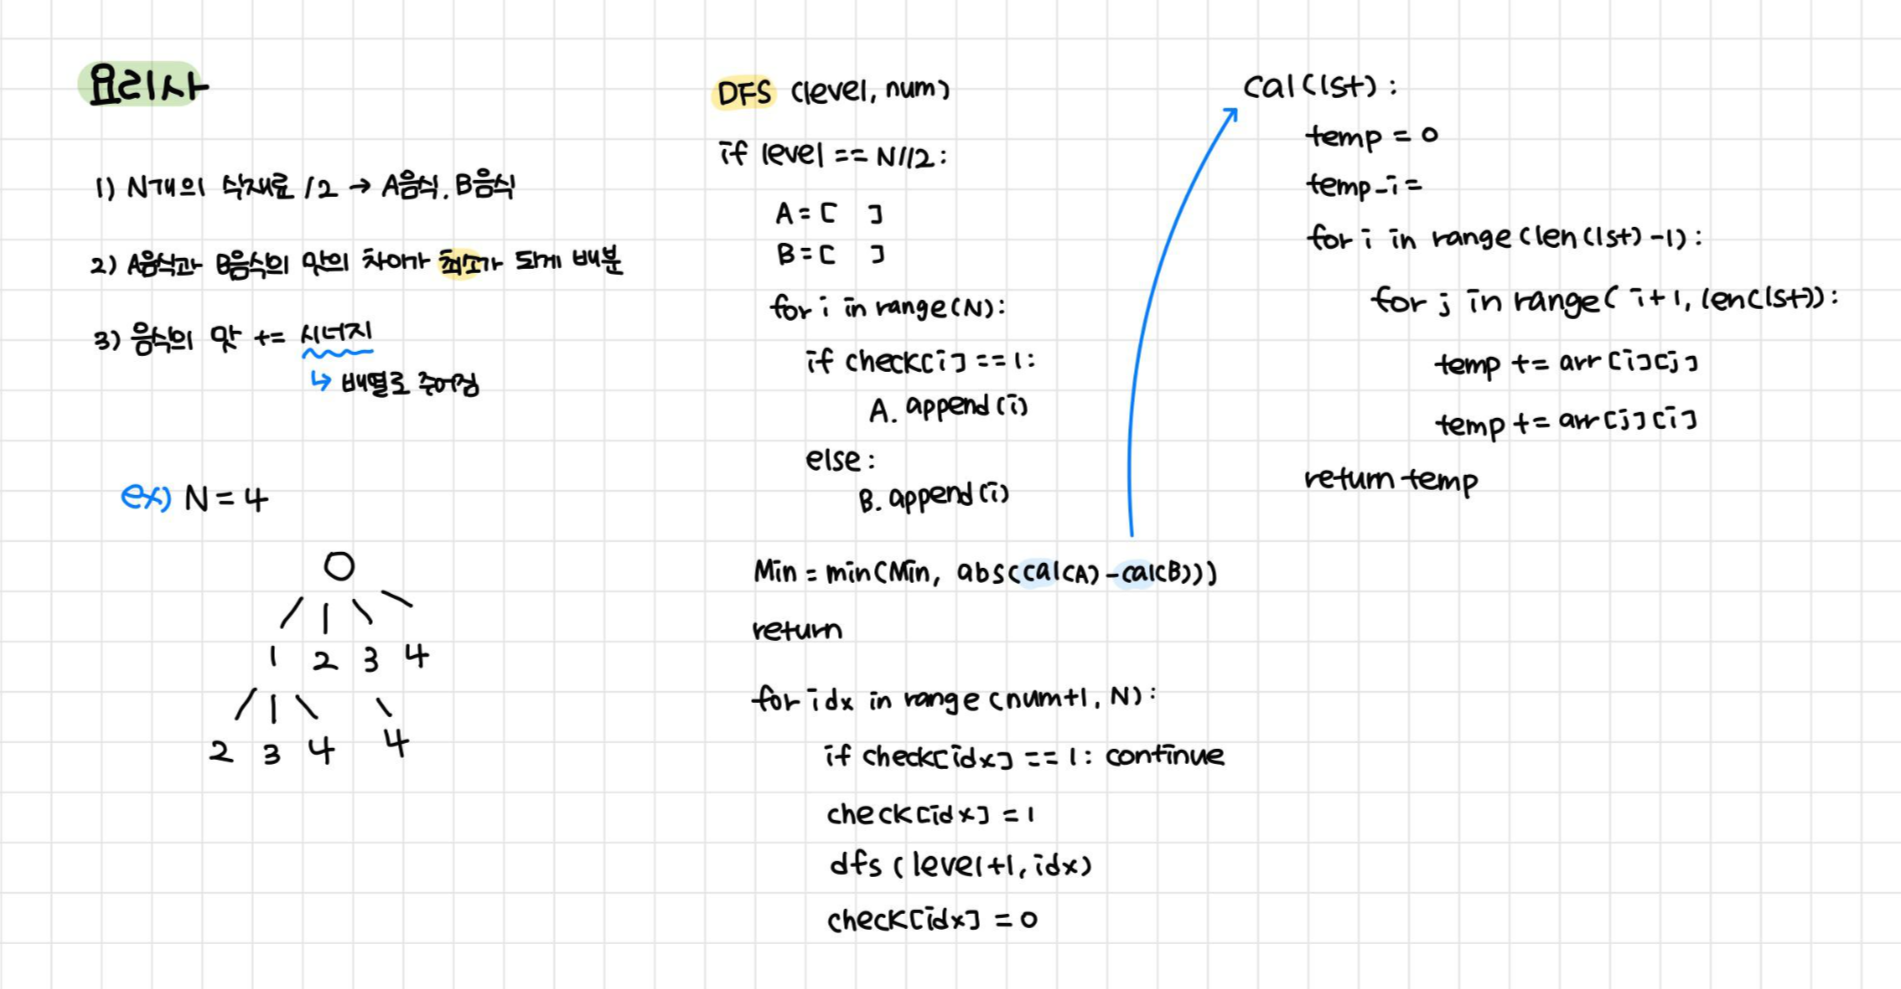 요리사
1) N개의 식재료 /2 → A음식. B음식
2) A음식과 B음식의 맛의 차이가 최소가 되게 배분
3) 음식의 맛 += 시너지
↳ 배열로 주어짐
ex) N = 4
0
1 2 3 4
2 3 4 4
DFS (level, num)
if level == N//2:
A = [ ]
B = [ ]
for i in range(N):
if check[i] == 1:
A. append(i)
else:
B. append(i)
Min = min(Min, abs(cal(A) - cal(B)))
return
for idx in range (num+1, N):
if check[idx] == 1: continue
check[idx] = 1
dfs (level+1, idx)
check[idx] = 0
cal(lst):
temp = 0
temp_i =
for i in range(len(lst)-1):
for j in range( i+1, len(lst)):
temp += arr[i][j]
temp += arr[j][i]
return temp